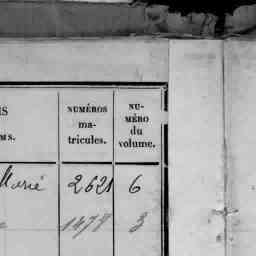 NUMÉROS
ma-
tricules.
NU-
MÉRO
du
volume.
MS.
Marié 2621 6
1478 3